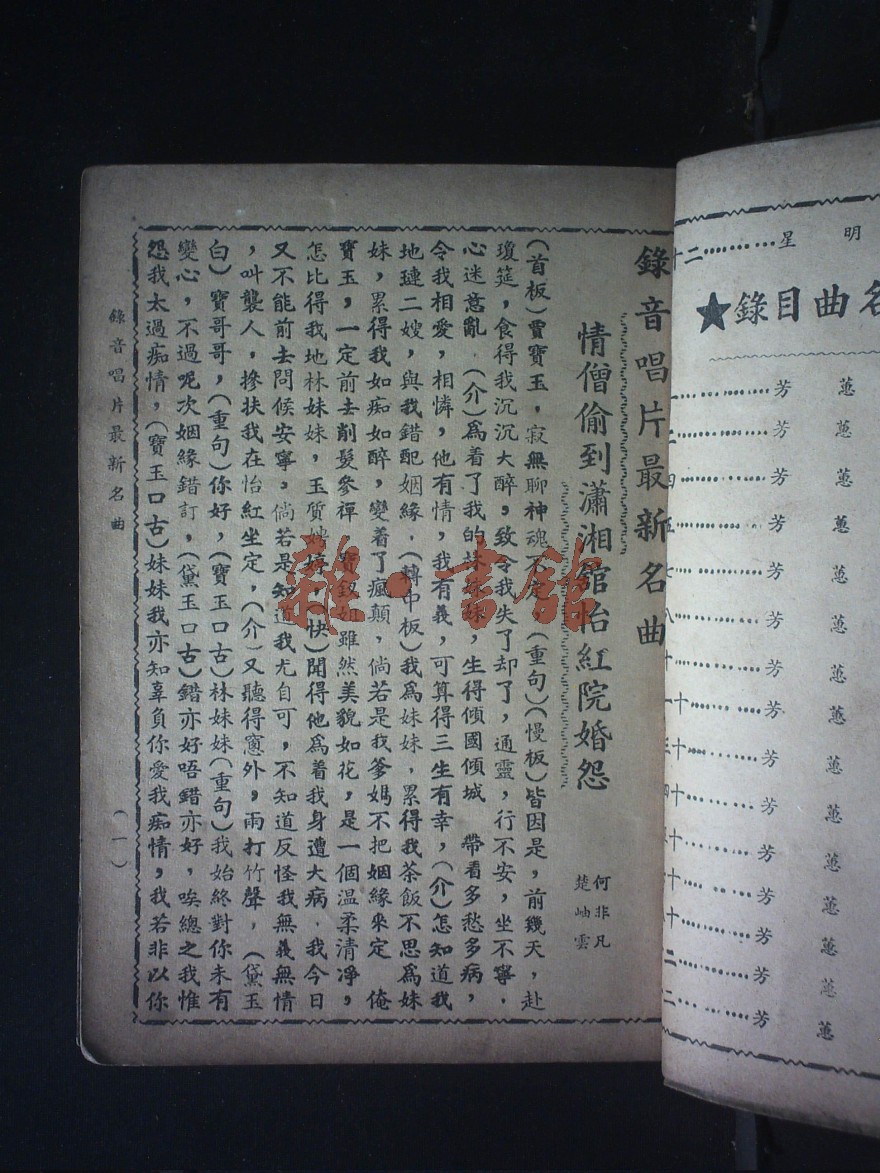 錄音唱片最新名曲
情僧偷到瀟湘館怡紅院婚怨
何非凡
楚岫雲
(首板)賈寶玉，寂無聊神魂不定，(重句)(慢板)皆因是，前幾天，赴
瓊筵，食得我沉沉大醉，致令我失了却了，通靈，行不安，坐不寧．
心迷意亂．(介)爲着了我的林妹妹，生得傾國傾城　帶着多愁多病，
令我相愛，相憐，他有情，我有義，可算得三生有幸，(介)怎知道我
地璉二嫂，與我錯配姻緣．(轉中板)我爲妹妹．累得我茶飯不思爲妹
妹，累得我如痴如醉，變着了瘋顛，倘若是我爹媽不把姻緣來定　俺
寶玉，一定前去削髮參禪　寶釵姐雖然美貌如花，是一個温柔清凈，
怎比得我地林妹妹，玉質娉婷，(快)聞得他爲着我身遭大病．我今日
又不能前去問候安寧。倘若是知道我尤自可，不知道反怪我無義無情
，叫襲人，摻扶我在怡紅坐定，(介)又聽得窻外，雨打竹聲，(黛玉
白)寶哥哥，(重句)你好，(寶玉口古)林妹妹(重句)我始終對你未有
變心，不過呢次姻緣錯訂，(黛玉口古)錯亦好唔錯亦好，唉總之我惟
怨我太過痴情，(寶玉口古)妹妹我亦知辜負你愛我痴情，我若非以你
錄音唱片最新名曲
(一)
明
星
二十
名曲目錄★
蕙
芳
蕙
芳
蕙
芳
四
蕙
芳
五
蕙
芳
七
蕙
芳
八
蕙
芳
十
蕙
芳
十一
蕙
芳
十三
蕙
芳
十四
蕙
芳
蕙
芳
蕙
芳
蕙
芳
蕙
芳
雜·書館